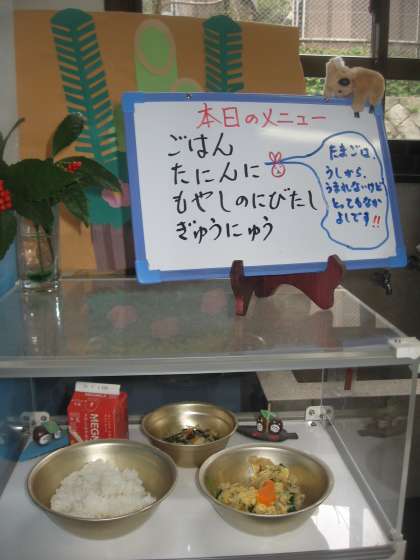 本日のメニュー
ごはん
たにんに
もやしのにびたし
ぎゅうにゅう
たまごは、
うしから、
うまれないけど
とってもなか
よしです!!
MEG